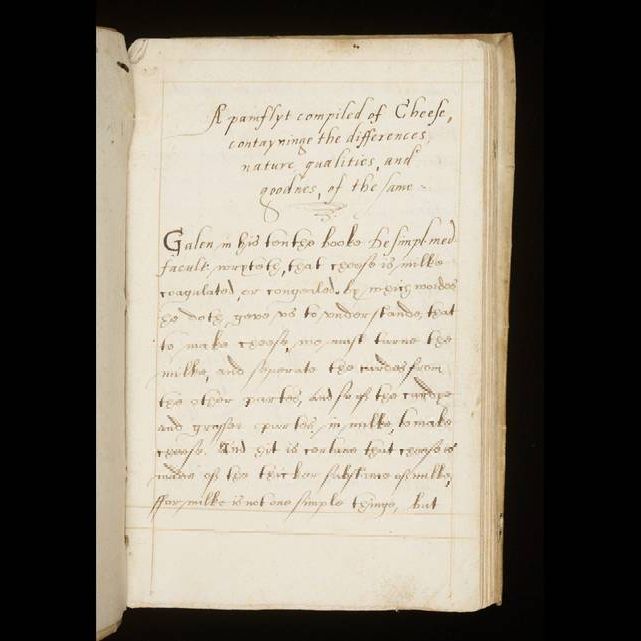 A pamflyt compiled of Cheese,
contayninge the differences,
nature, qualities, and
goodnes, of the same
Galen in his tenthe booke De simpl: med
facult: wryteth, that cheese is milke
coagulated, or congealed. by which wordes
he doth geve us to understande, that
to make cheese, we must turne the
milke, and seperate the curdes from
the other partes, and so of the
and grosser partes in milke, to make
cheese. And hit is certane that cheese is
made of the thicker substance of milke,
ffor milke is not one simple thinge, but